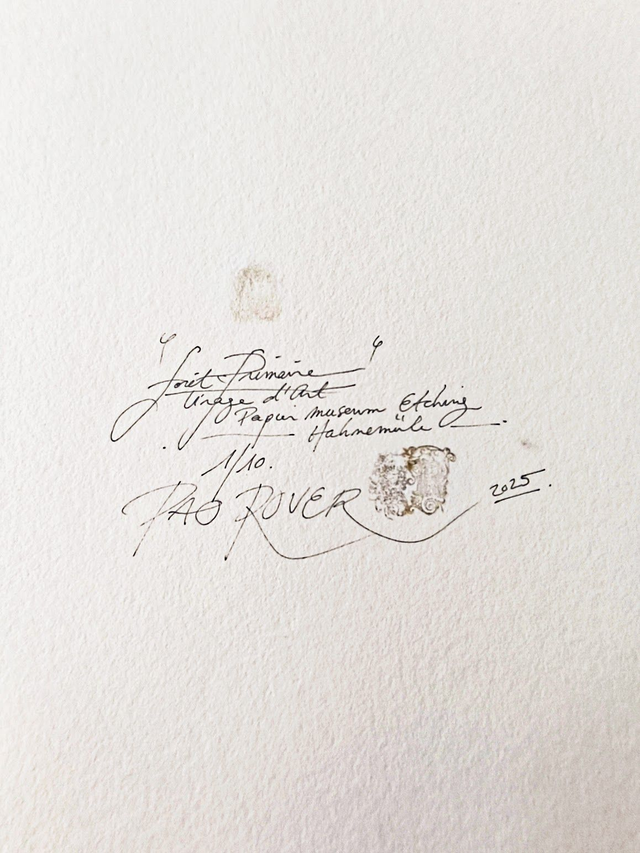 "Forêt Primaire"
tirage d'Art
Papier museum Etching
Hahnemüle.
1/10.
PAO ROVER 2025.